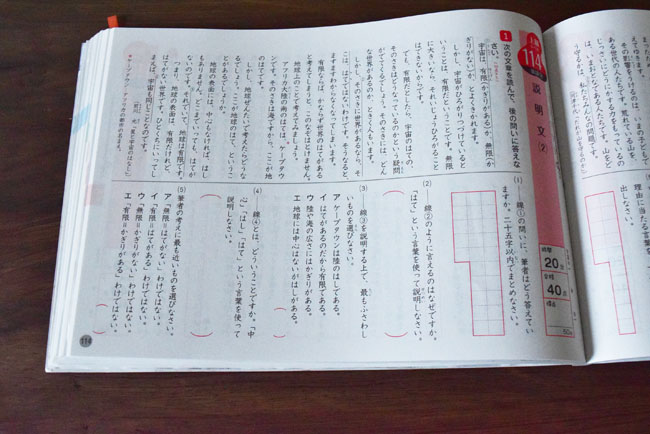 上級
114
説明文(2)
1 次の文章を読んで、後の問いに答えな
さい。
宇宙は、有限(かぎりがある)か、無限(か
ぎりがない)か、とよくきかれます。
しかし、宇宙がひろがりつづけていると
いうことは、有限だということです。無限
に大きいなら、それいじょうひろがること
はできないからです。
で、有限だとしたら、宇宙のはての、
そのさきはどうなっているのかという疑問
がでてくるでしょう。そのさきには、どん
な世界があるのか、ときく人もいます。
しかし、そのさきに世界があるなら、そ
こは、はてではないわけです。そうなると、
ますますわからなくなってしまいます。
有限ならば、かならず世界のはてがある
と考えてしまうから、いけないのです。
地球上のことで考えてみましょう。
アフリカ大陸の南のはては、ケープタウ
ンです。そのさきは海ですから、ここが地
のはてです。
しかし、地球ぜんたいで考えたらどうな
るでしょう。ここが地球のはて、というこ
とがあるでしょうか。
地球の表面には、中心もなければ、はし
もありません。どこまでいっても、はてが
ないのです。それでいて、地球は有限です。
つまり、地球の表面は、有限だけれど、
はてがない世界です。ひとくちにいってし
まえば、宇宙も同じことなのです。
(1) ―線①の問いに、筆者はどう答えてい
ますか。二十五字以内でまとめなさい。
(2) ―線②のように言えるのはなぜですか。
「はて」という言葉を使って説明しなさい。
(3) ―線③を説明する上で、最もふさわし
いものを選びなさい。
ア ケープタウンは陸のはしである。
イ はてがあるのだから有限である。
ウ 陸や海の広さにはかぎりがある。
エ 地球には中心はないがはしがある。
(4) ―線④とは、どういうことですか。「中
心」「はし」「はて」という言葉を使って
説明しなさい。
(5) 筆者の考えに最も近いものを選びなさい。
ア 「無限=はてがない」わけではない。
イ 「有限=はてがある」わけではない。
ウ 「無限=かぎりがない」わけではない。
エ 「有限=かぎりがある」わけではない。
時間
20分
合格
40点
得点
50点
114
理由に当たる言葉
出しなさい。